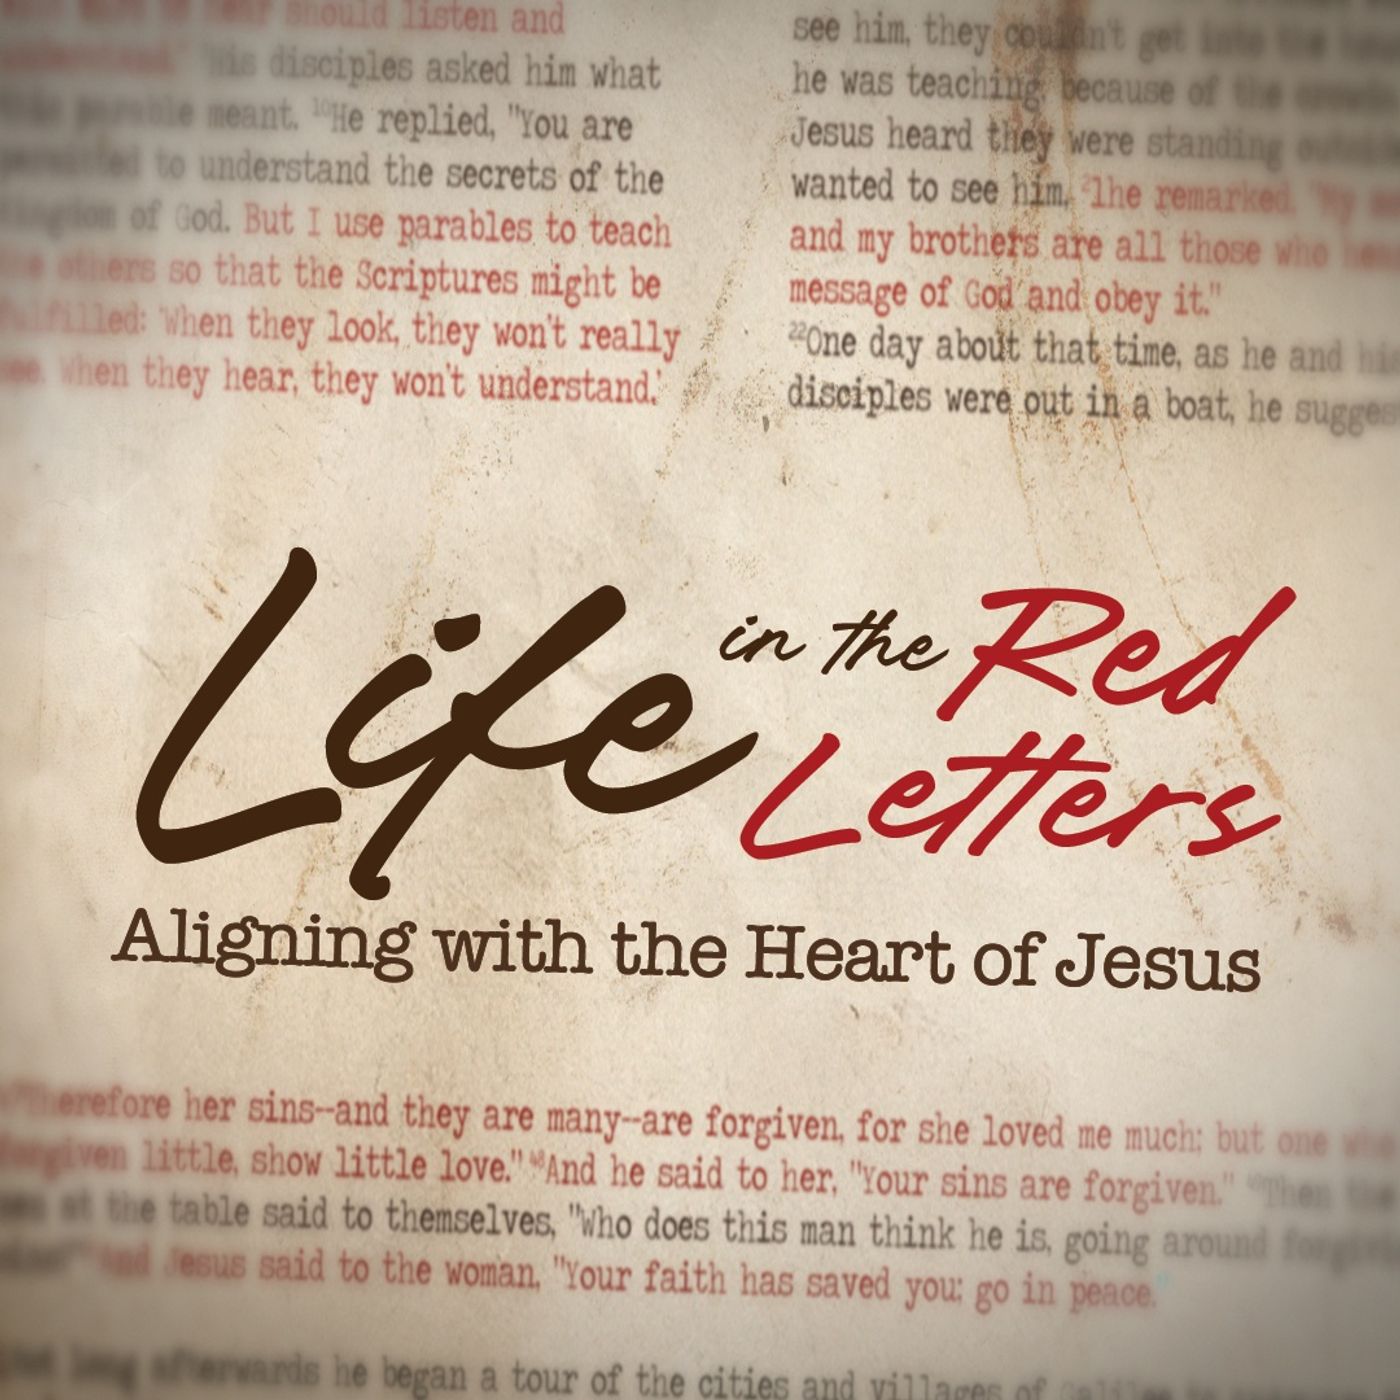 should listen and
His disciples asked him what
this parable meant. 10He replied, "You are
permitted to understand the secrets of the
kingdom of God. But I use parables to teach
the others so that the Scriptures might be
fulfilled: 'When they look, they won't really
see. When they hear, they won't understand.'
see him, they couldn't get into the
he was teaching, because of the
Jesus heard they were standing outside
wanted to see him, 21he remarked. "My
and my brothers are all those who hear
message of God and obey it."
22One day about that time, as he and his
disciples were out in a boat, he
Life in the Red
Letters
Aligning with the Heart of Jesus
"Therefore her sins--and they are many--are forgiven, for she loved me much; but one who
forgiven little, show little love." 48And he said to her, "Your sins are forgiven." Then the
at the table said to themselves, "Who does this man think he is, going around
And Jesus said to the woman, "Your faith has saved you; go in peace."
long afterwards he began a tour of the cities and villages of Galilee